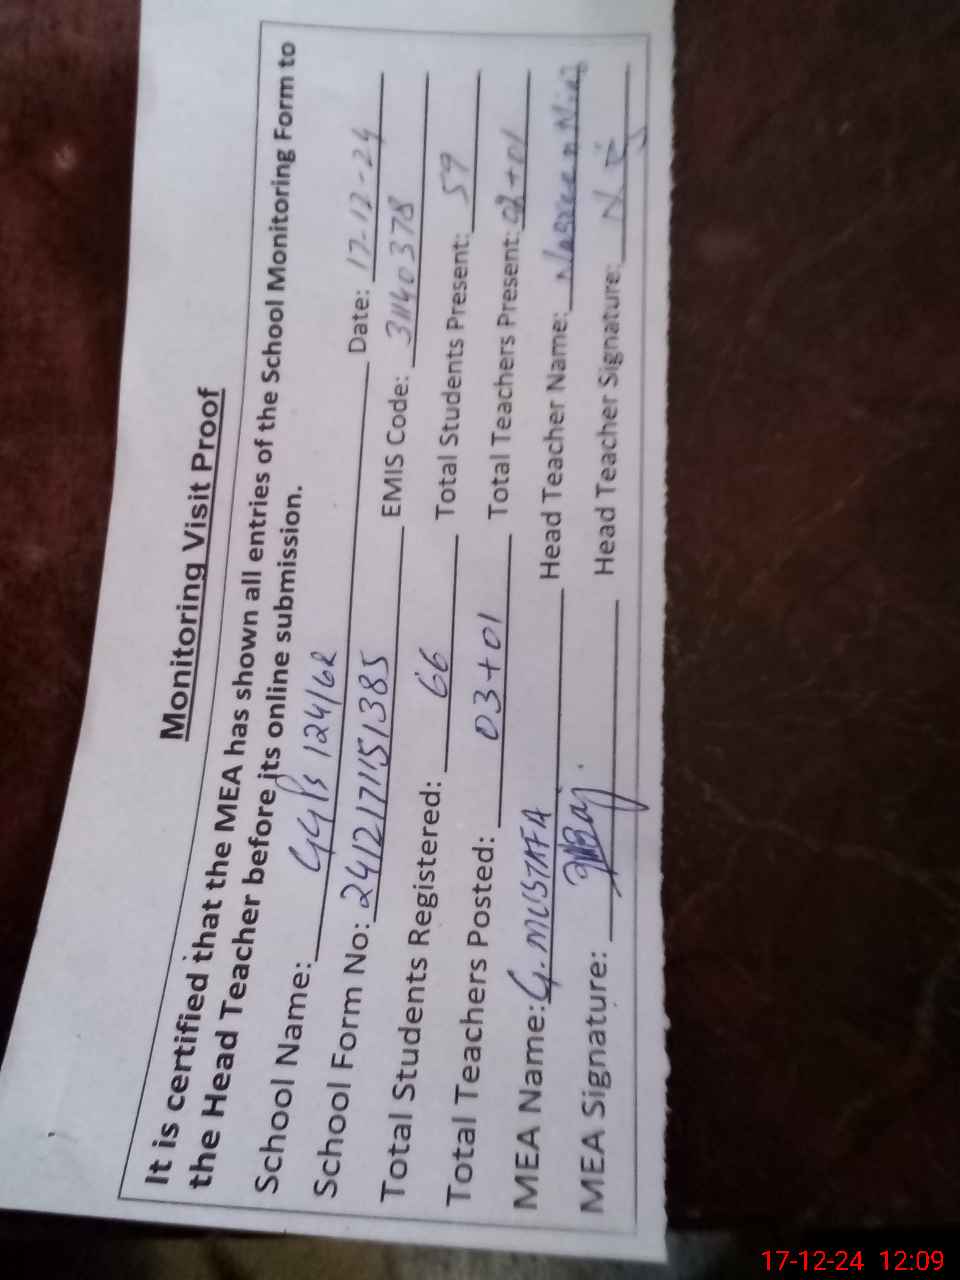 Monitoring Visit Proof
It is certified that the MEA has shown all entries of the School Monitoring Form to
the Head Teacher before its online submission.
School Name: GGPS 124/6R Date: 17-12-24
School Form No: 2412171151385 EMIS Code: 31140378
Total Students Registered: 66 Total Students Present: 59
Total Teachers Posted: 03+01 Total Teachers Present: 02+01
MEA Name: G. MUSTAFA Head Teacher Name: Nasreen Niaz
MEA Signature: Head Teacher Signature:
17-12-24 12:09